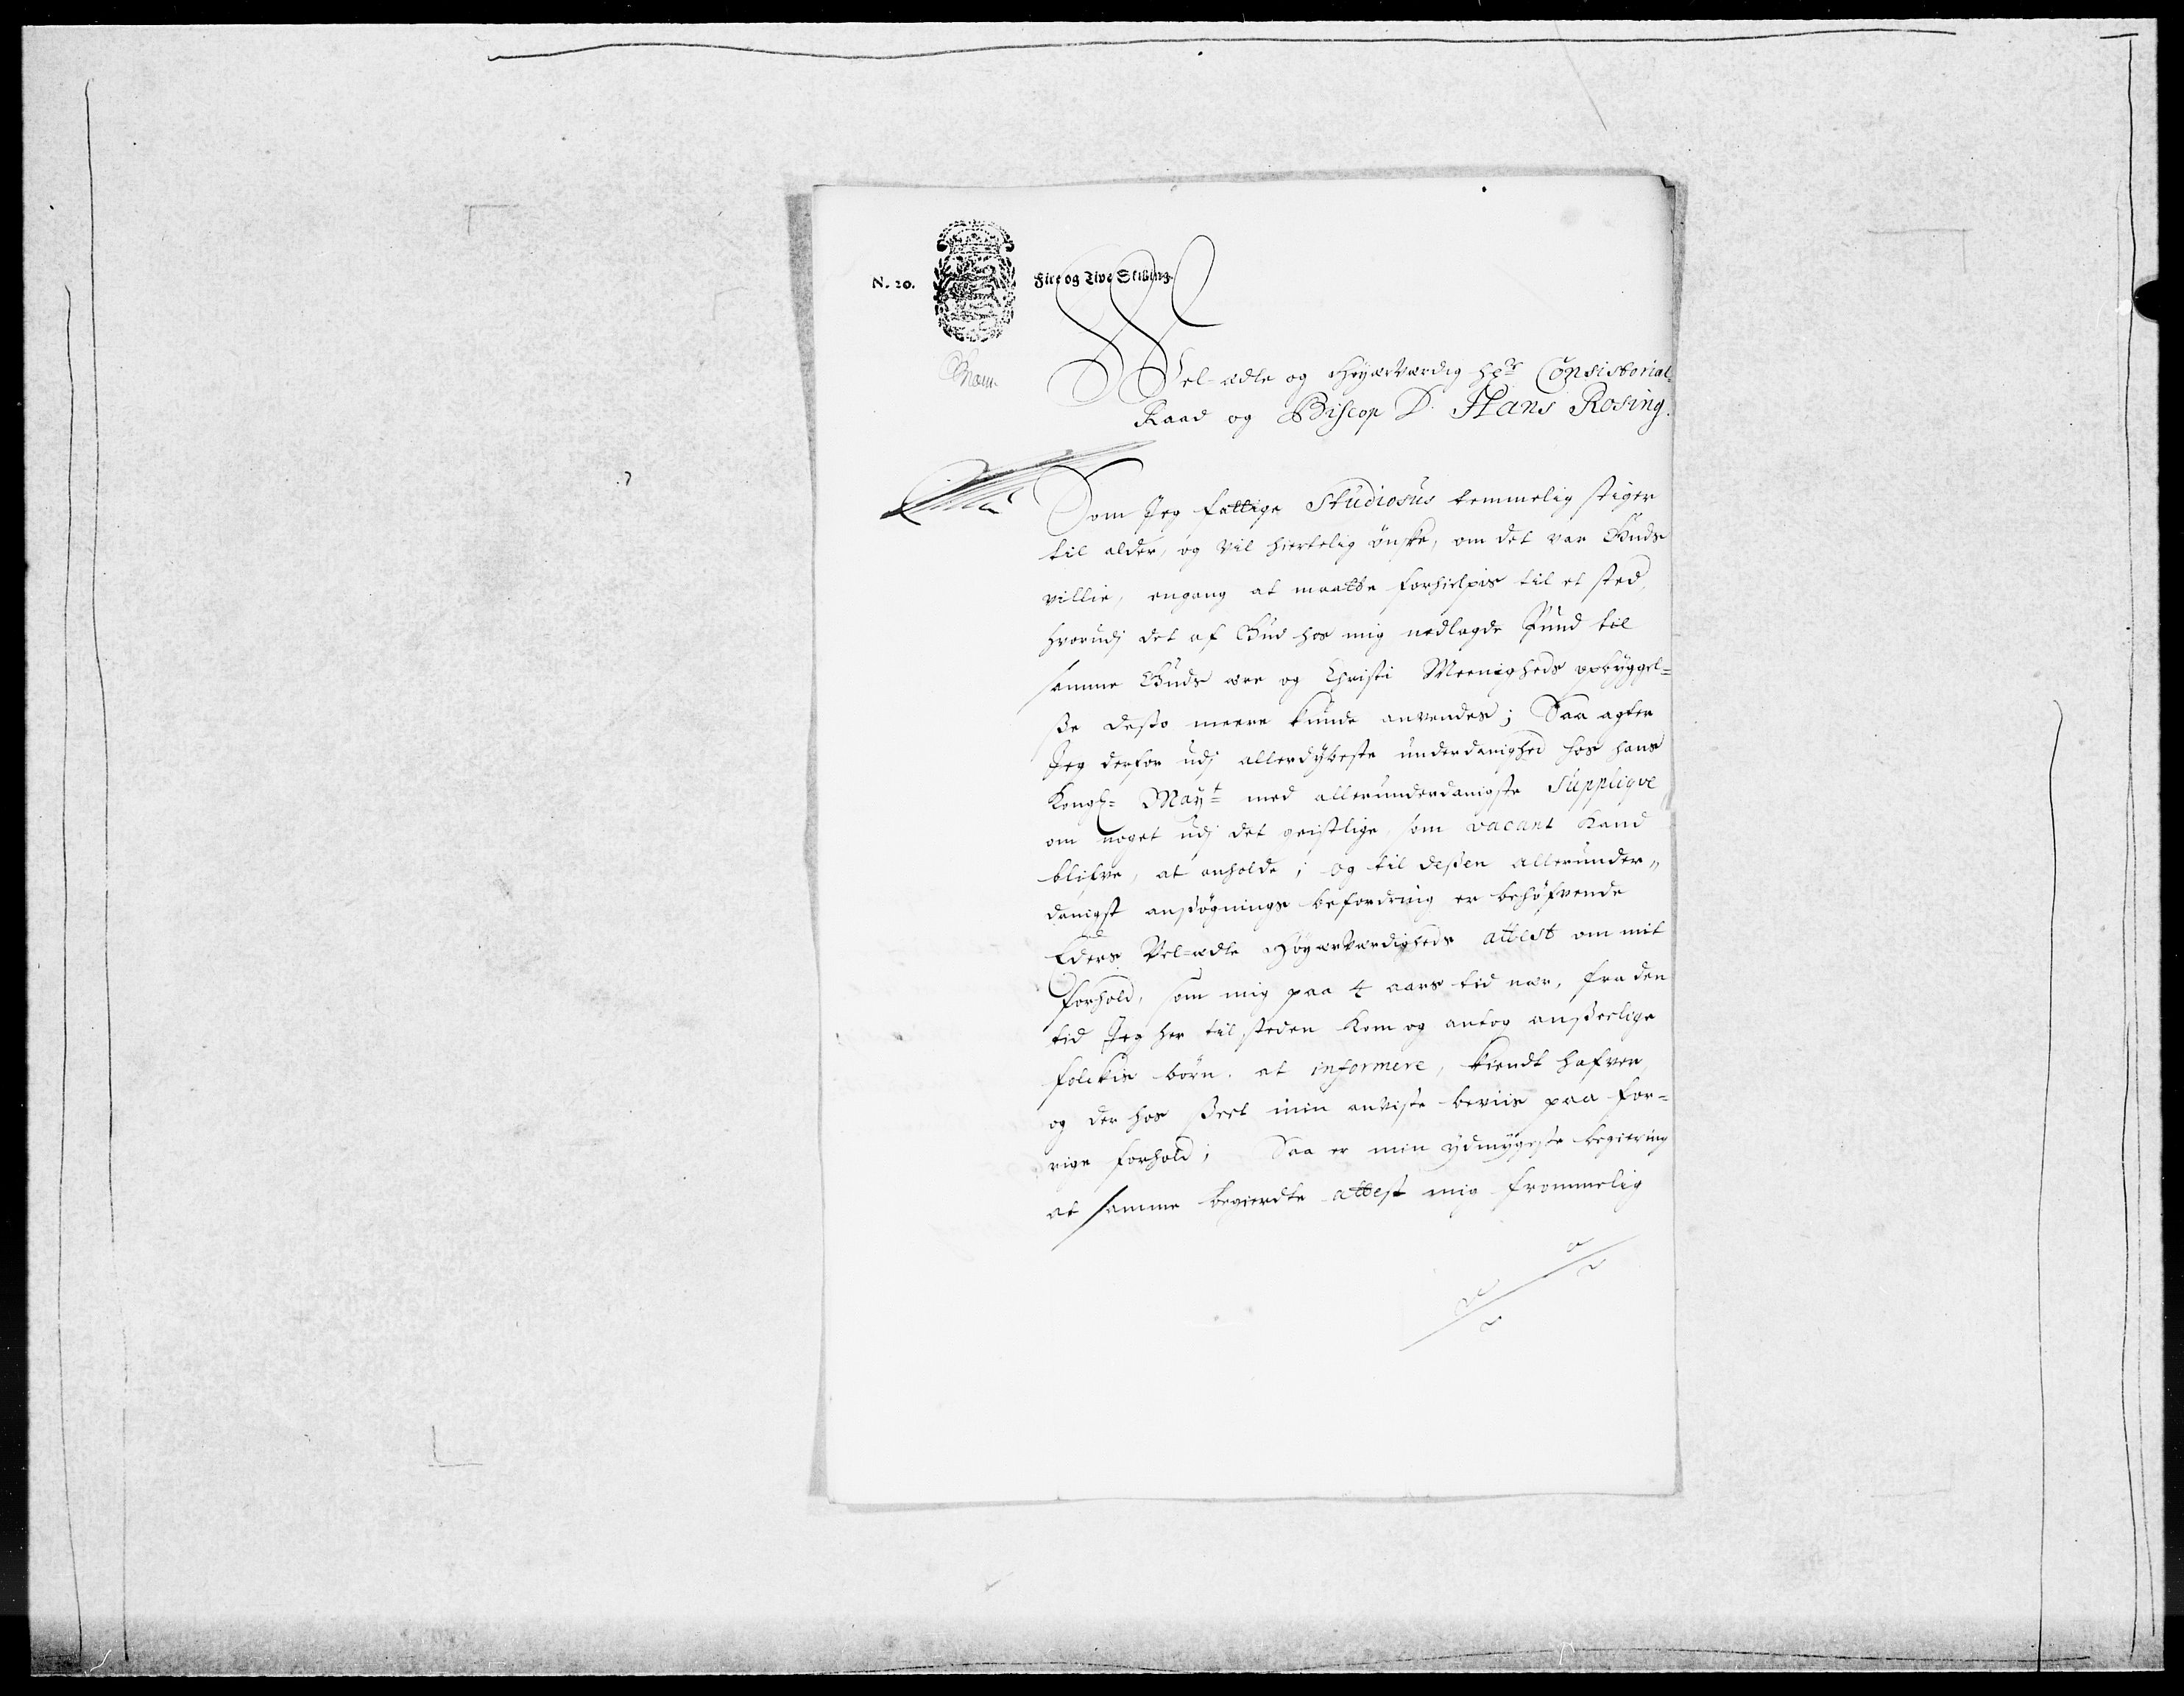 N. 20. Fire og Tive Skilling.
Vel-ædle og Høyærværdig Hr. Consistorial-
Raad og Biscop D. Hans Rosing.
Som Jeg fattige Studiosus temmelig stiger
til alder, og vil hiertelig ønske, om det var Guds
villie, engang at maatte forhielpis til et sted,
hvorudj det af Gud hos mig nedlagde Pund til
samme Guds ære og Christi Meenigheds opbyggel=
ße desto meere kunde anvendes; Saa agter
Jeg derfor udj allerdybeste underdanighed hos hans
Kongl= Mayt= med allerunderdanigste Suppliqve
om noget udj det geistlige, som vacant kand
blifve, at anholde; og til deßen allerunder„
danigst ansøgnings befordring er behøfvende
Eders Vel-ædle Høyærværdigheds attest om mit
forhold, som mig paa 4 aars tid nær, fra den
tid Jeg her til steden kom og antog anseelige
folckis børn at informere, kiendt hafver,
og der hos seet min anviste beviis paa for=
rige forhold; Saa er min ydmygeste begiering
at samme begierdte attest mig frommelig